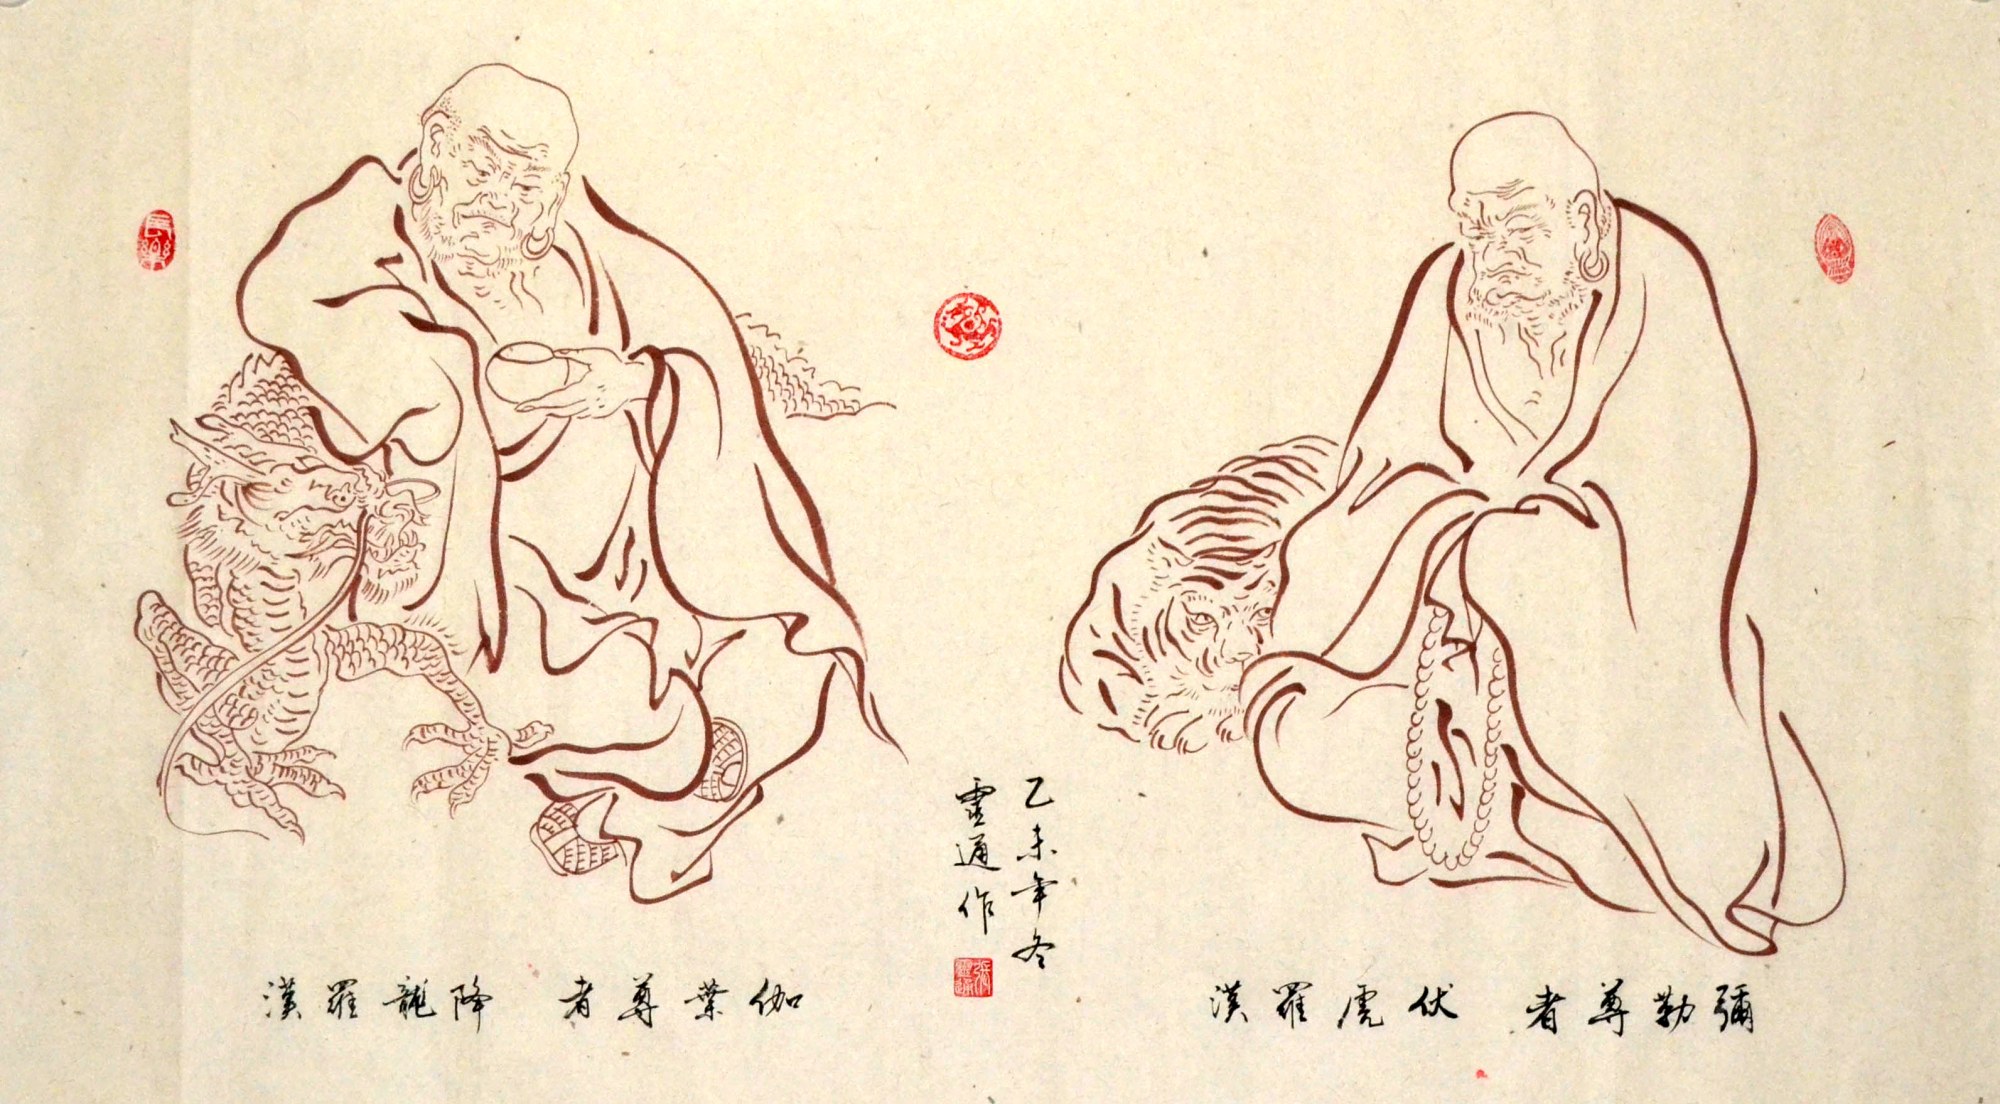 彌勒尊者 伏虎羅漢
乙未年冬
靈通作
伽葉尊者 降龍羅漢